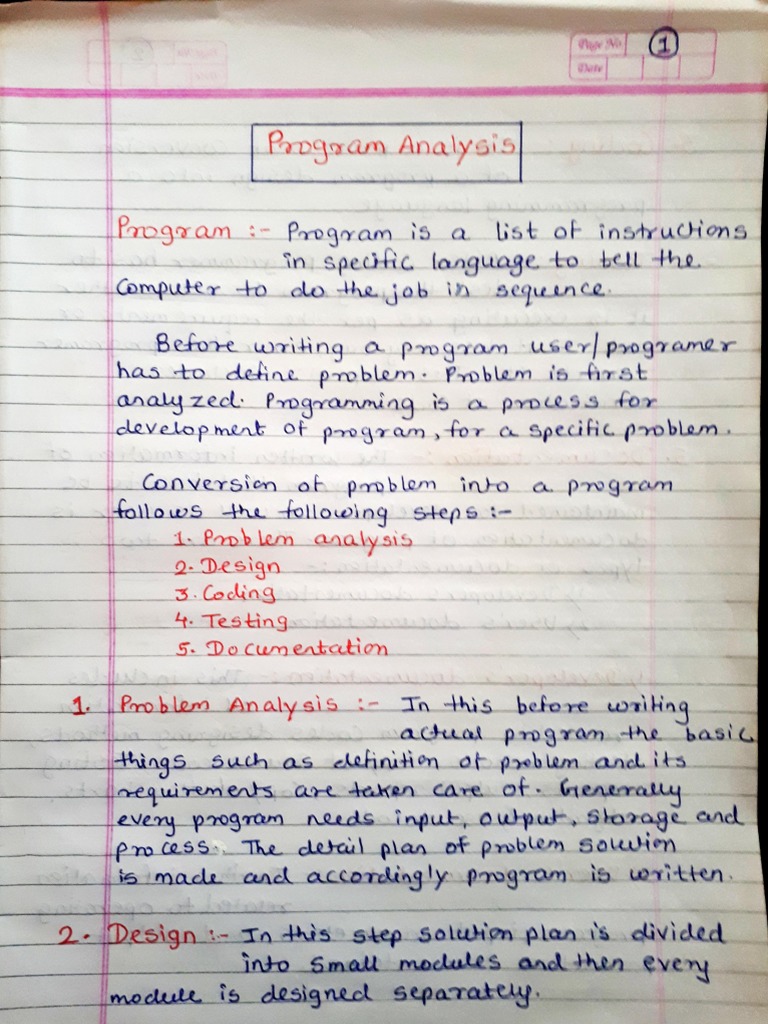 Page No. 1
Date
Program Analysis
Program :- Program is a list of instructions
in specific language to tell the
computer to do the job in sequence.
Before writing a program user/programer
has to define problem. Problem is first
analyzed. Programming is a process for
development of program, for a specific problem.
Conversion of problem into a program
follows the following steps :-
1. Problem analysis
2. Design
3. Coding
4. Testing
5. Documentation
1. Problem Analysis :- In this before writing
actual program, the basic
things such as definition of problem and its
requirements are taken care of. Generally
every program needs input, output, storage and
process. The detail plan of problem solution
is made and accordingly program is written.
2. Design :- In this step solution plan is divided
into small modules and then every
module is designed separately.